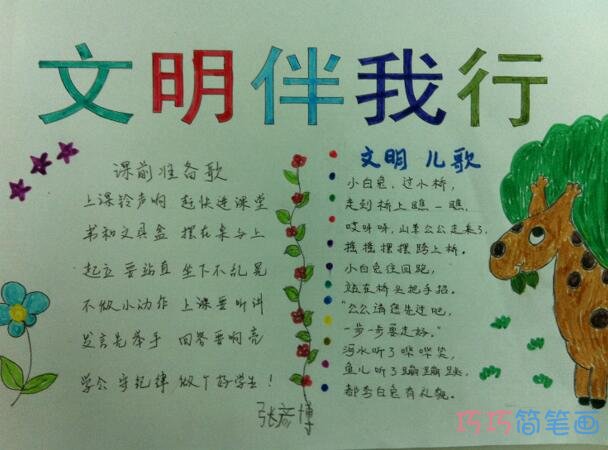 文明伴我行
课前准备歌
上课铃声响 赶快进课堂
书和文具盒 摆在桌子上
起立要站直 坐下不乱晃
不做小动作 上课要听讲
发言先举手 回答要响亮
学会守纪律 做个好学生！
文明 儿歌
小白兔，过小桥，
走到桥上瞧一瞧，
哎呀呀，山羊公公走来了，
摇摇摆摆跨上桥。
小白兔往回跑，
站在桥头把手招。
“公公请您先过吧，
一步一步要走好。”
河水听了哗哗笑，
鱼儿听了蹦蹦跳，
都夸白兔有礼貌。
张彦博
巧巧简笔画